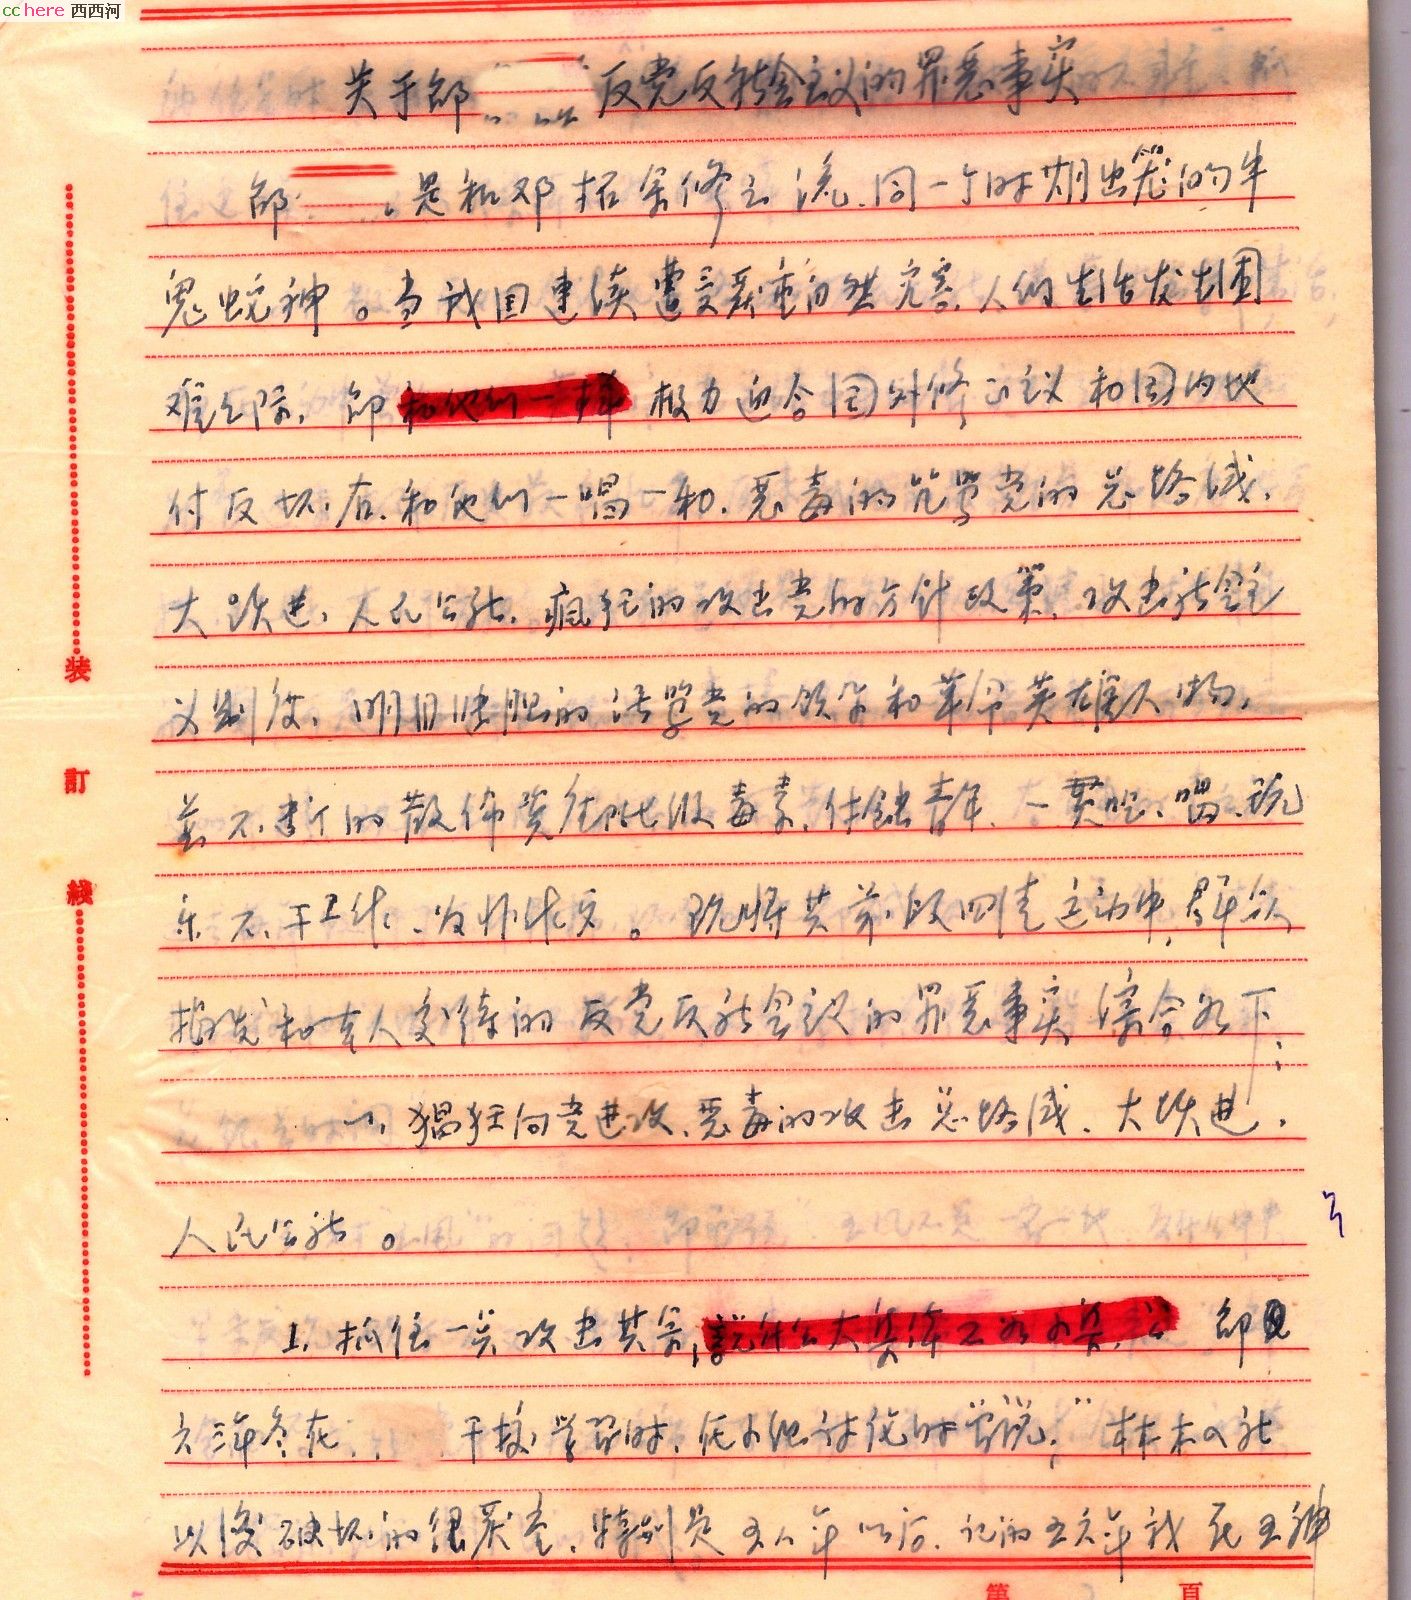 cchere 西西河
关于邹 反党反社会主义的罪恶事实
邹 是和邓拓 之流同一个时期出笼的牛
鬼蛇神。当我国连续遭受严重自然灾害，人们生活发生困
难之际，邹和他们一样极力迎合国外修正主义和国内地
付反坏右，和他们一唱一和，恶毒的咒骂党的总路线，
大跃进，人民公社，疯狂的攻击党的方针政策，攻击社会主
义制度，明目张胆的活 党的领 和革命英雄人物，
并不 的散佈资产阶级毒素，付蚀青年，一贯吃、喝、玩
乐不干工作，为非作歹。现将其前段四清运动中，群众
揭发和本人交待的反党反社会主义的罪恶事实综合如下：
一，猖狂向党进攻，恶毒的攻击总路线，大跃进，
人民公社。
1. 抓住一点攻击其余， 邹
六三年冬在 干校学习时，在小组讨论时曾说：“林木公社
以后破坏的很严重，特别是五八年以后，记的五六年我在五
装
訂
線
第 頁